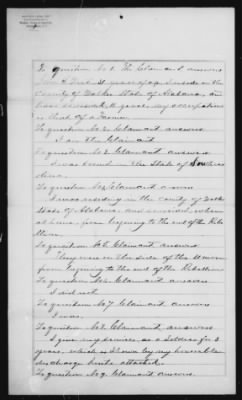 To question No 1 The Claimant answers
I that I years of age. I reside in the
County of Walker State of Alabama, and
have resided
is that of a Farmer.
To question No 2. Claimant answers
I am the Claimant
To question No 3. Claimant answers
I was born in the State of South Car
olina.
To question No 4 Claimant answers
I was residing in the County of Walker
State of Alabama, and remained
at home, from beginning to the end of the Rebe
llion.
To question No 5. Claimant answers
They were on the side of the Union
from beginning to the end of the Rebellion
To question No 6. Claimant answers
I did not
To question No 7 Claimant answers
I was.
To question No 8. Claimant answers
I gave my services as a Soldier for 3
years, which is shown by my honorable
discharge hereto attached.
To question No 9. Claimant answers.